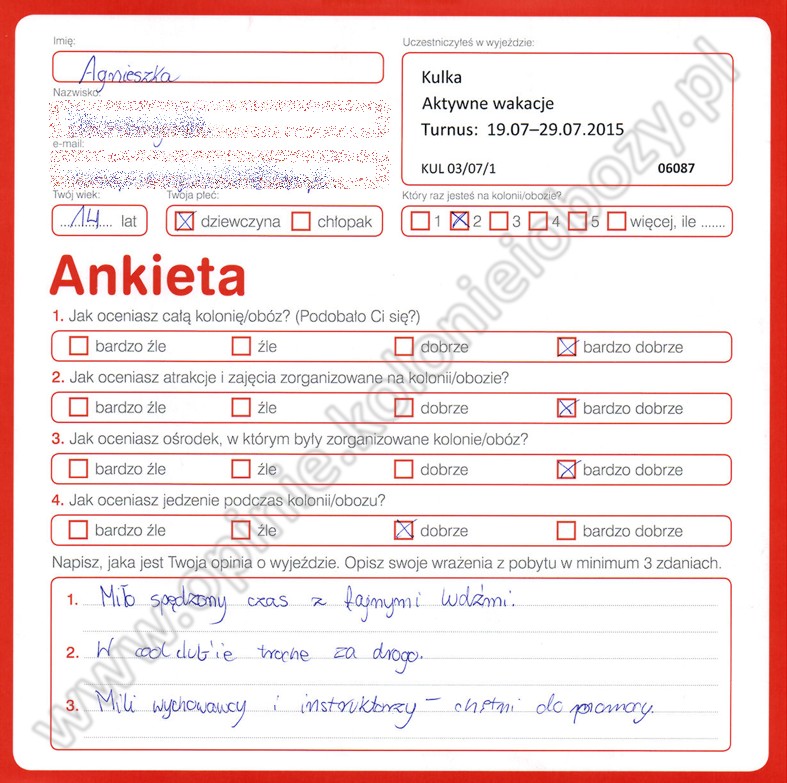 Imię:
Agnieszka
Nazwisko:
e-mail:
Twój wiek:
14 lat
Twoja płeć:
dziewczyna chłopak
Uczestniczyłeś w wyjeździe:
Kulka
Aktywne wakacje
Turnus: 19.07–29.07.2015
KUL 03/07/1 06087
Który raz jesteś na kolonii/obozie?
1 2 3 4 5 więcej, ile .......
Ankieta
1. Jak oceniasz całą kolonię/obóz? (Podobało Ci się?)
bardzo źle źle dobrze bardzo dobrze
2. Jak oceniasz atrakcje i zajęcia zorganizowane na kolonii/obozie?
bardzo źle źle dobrze bardzo dobrze
3. Jak oceniasz ośrodek, w którym były zorganizowane kolonie/obóz?
bardzo źle źle dobrze bardzo dobrze
4. Jak oceniasz jedzenie podczas kolonii/obozu?
bardzo źle źle dobrze bardzo dobrze
Napisz, jaka jest Twoja opinia o wyjeździe. Opisz swoje wrażenia z pobytu w minimum 3 zdaniach.
1. Miło spędzony czas z fajnymi ludźmi.
2. W cool club'ie trochę za drogo.
3. Mili wychowawcy i instruktorzy – chętni do pomocy.
www.opinie.kolonieiobozy.pl